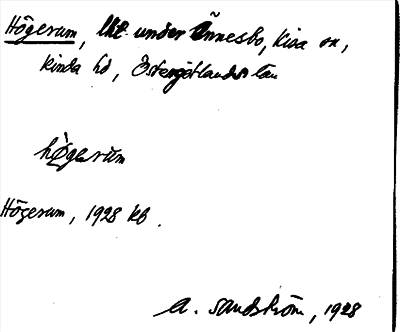 Högerum, lht under Önnesbo, Kisa sn,
Kinda hd, Östergötlands län
högərum
Högerum, 1928 kb.
A. Sandström, 1928